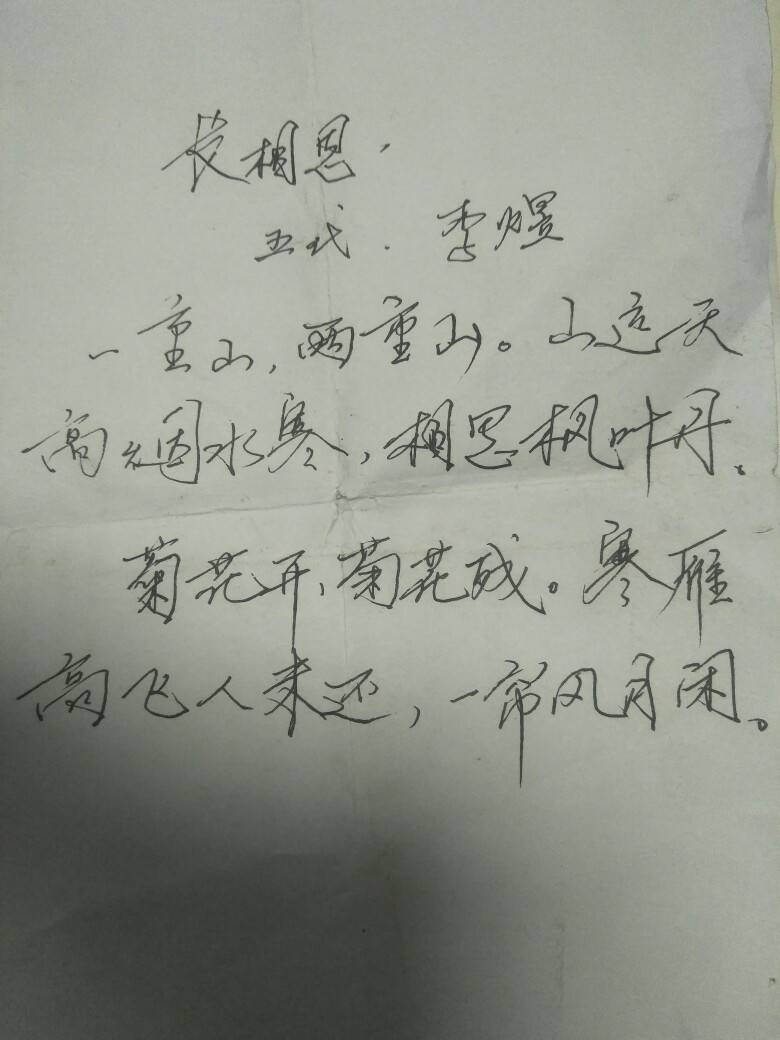 长相思.
五代.李煜
一重山,两重山。山远天
高烟水寒,相思枫叶丹。
菊花开,菊花残。寒雁
高飞人未还,一帘风月闲。